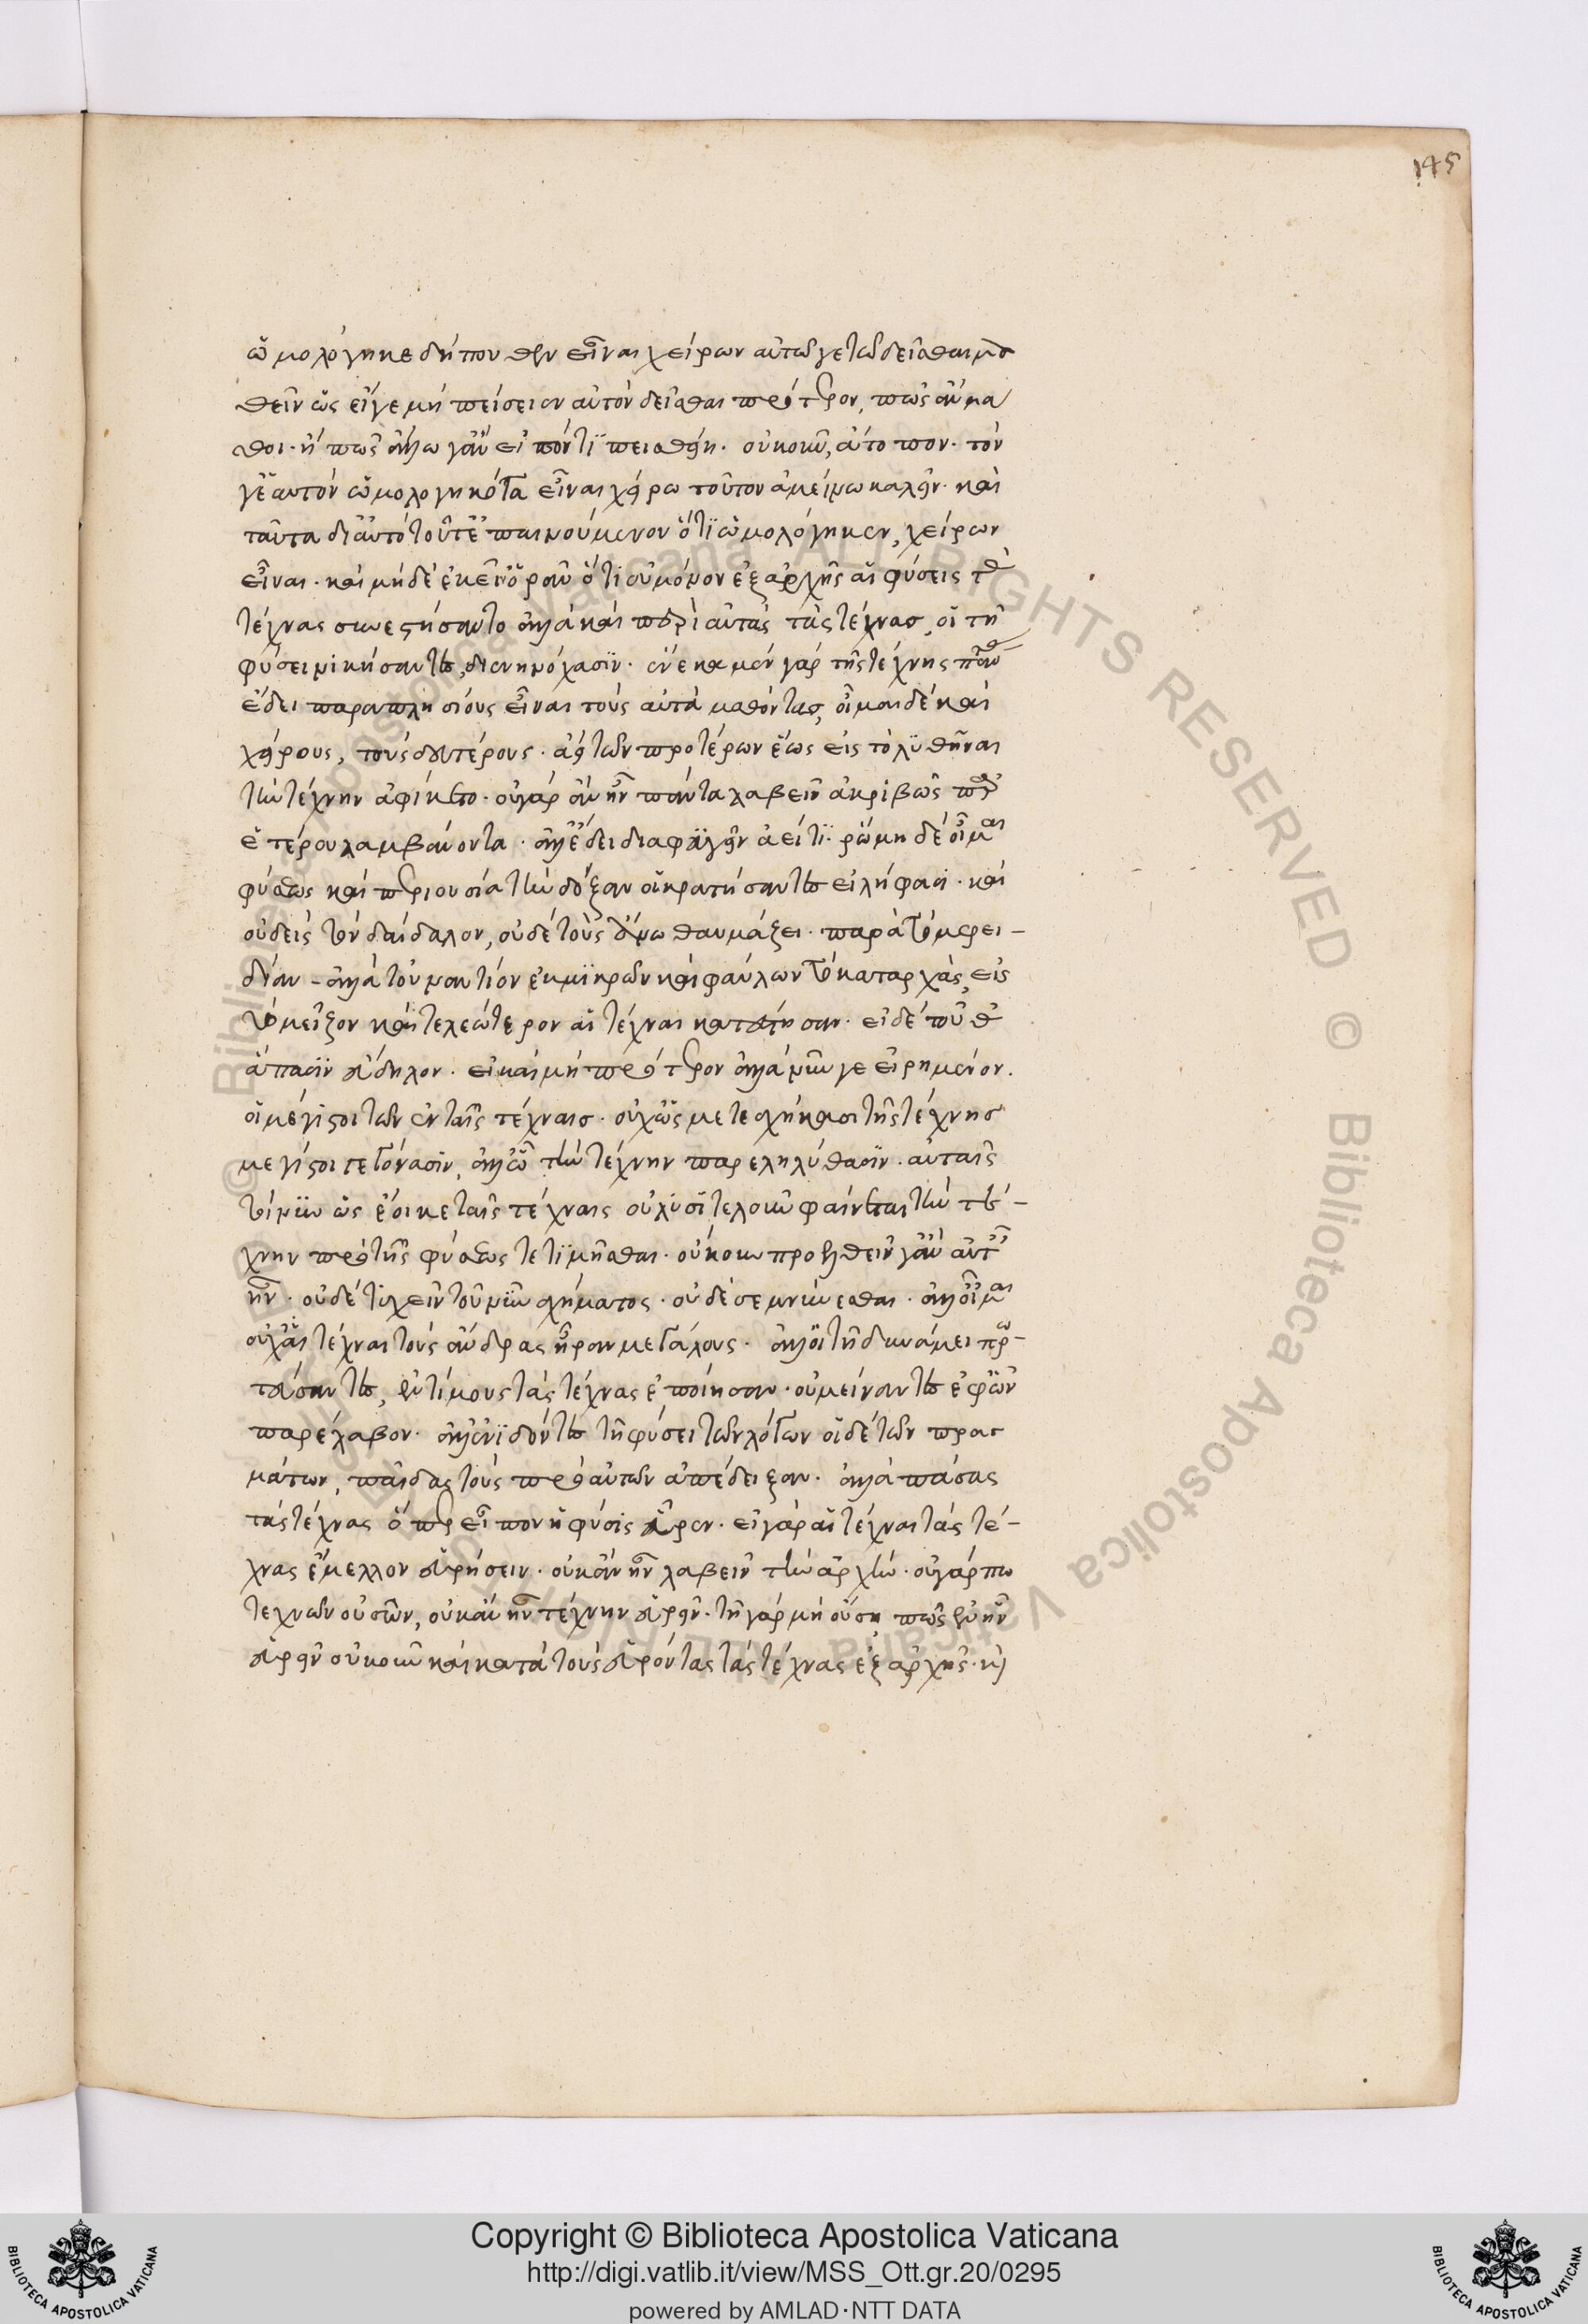 145
ὡμολόγηκε δήπουθεν εἶναι χείρων αὐτῷ γε τῷ δεῖσθαι μα
θεῖν ὡς εἴγε μὴ πείσειεν αὐτὸν δεῖσθαι πρότερον, πῶς ἂν μά
θοι· ἢ πῶς ἄλλῳ γ' ἂν εἰπόντι πεισθείη. οὐκοῦν, ἄτοπον· τὸν
γ' ἑαυτὸν ὡμολογηκότα εἶναι χείρω τοῦτον ἀμείνω καλεῖν· καὶ
ταῦτα δι' αὐτὸ τοῦτ' ἐπαινούμενον ὅτι ὡμολόγηκεν, χείρων
εἶναι. καὶ μὴ δὲ ἐκεῖν' ὁρᾶν ὅτι οὐ μόνον ἐξαρχῆς αἱ φύσεις τὰς
τέχνας συνεστήσαντο ἀλλὰ καὶ περὶ αὐτὰς τὰς τέχνας, οἱ τῇ
φύσει νικήσαντες, διενηνόχασιν. ἕνεκα μὲν γὰρ τῆς τέχνης πάντας
ἔδει παραπλησίους εἶναι τοὺς αὐτὰ μαθόντας, οἶμαι δὲ καὶ
χείρους, τοὺς δευτέρους· ἀεὶ τῶν προτέρων ἕως εἰς τὸ λυθῆναι
τὴν τέχνην ἀφίκετο. οὐ γὰρ ἂν ἦν πάντα λαβεῖν ἀκριβῶς παρ'
ἑτέρου λαμβάνοντα· ἀλλ' ἔδει διαφυγεῖν ἀεί τι. ῥώμῃ δὲ οἶμαι
φύσεως καὶ περιουσίᾳ τὴν δόξαν οἱ κρατήσαντες εἰλήφασι· καὶ
οὐδεὶς τὸν δαίδαλον, οὐδὲ τοὺς ἄνω θαυμάζει· παρὰ τὸν φει-
δίαν - ἀλλὰ τοὐναντίον ἐκ μικρῶν καὶ φαύλων τὸ καταρχὰς, εἰς
τὸ μεῖζον καὶ τελεώτερον αἱ τέχναι κατέστησαν. εἰ δὲ τοῦθ'
ἅπασιν εὔδηλον. εἰ καὶ μὴ πρότερον ἀλλὰ νῦν γε εἰρημένον.
οἱ μέγιστοι τῶν ἐν ταῖς τέχναις. οὐχ ὡς μετεσχήκασι τῆς τέχνης
μέγιστοι γεγόνασιν, ἀλλ' ὡς τὴν τέχνην παρεληλύθασιν. αὐταῖς
τοίνυν ὡς ἔοικε ταῖς τέχναις οὐ λυσιτελοῦν φαίνεται τὴν τέ-
χνην πρὸ τῆς φύσεως τετιμῆσθαι. οὔκουν προελθεῖν γ' ἂν αὐταῖς
ἦν. οὐδὲ τυχεῖν τοῦ νῦν σχήματος. οὐδὲ σεμνύνεσθαι. ἀλλ' οἶμαι
οὐχ αἱ τέχναι τοὺς ἄνδρας ἦραν μεγάλους. ἀλλ' οἱ τῇ δυνάμει πρω-
τεύσαντες, ἐντίμους τὰς τέχνας ἐποίησαν. οὐ μείναντες ἐφ' ὧν
παρέλαβον. ἀλλ' ἐνιδόντες τῇ φύσει τῶν λόγων οἱ δὲ τῶν πραγ
μάτων, παῖδας τοὺς πρὸ αὐτῶν ἀπέδειξαν. ἀλλὰ πάσας
τὰς τέχνας ὅπερ εἶπον ἡ φύσις εὗρεν. εἰ γὰρ αἱ τέχναι τὰς τέ-
χνας ἔμελλον εὑρήσειν. οὐκ ἂν ἦν λαβεῖν τὴν ἀρχήν. οὐ γάρ πω
τεχνῶν οὐσῶν, οὐκ ἂν ἦν τέχνην εὑρεῖν. τῇ γὰρ μὴ οὔσῃ πῶς ἐνῆν
εὑρεῖν οὐκοῦν καὶ κατὰ τοὺς εὑρόντας τὰς τέχνας ἐξαρχῆς. καὶ
© Biblioteca Apostolica Vaticana ALL RIGHTS RESERVED © Biblioteca Apostolica Vaticana ALL RIGHTS RESERVED
Copyright © Biblioteca Apostolica Vaticana
http://digi.vatlib.it/view/MSS_Ott.gr.20/0295
powered by AMLAD·NTT DATA
BIBLIOTECA APOSTOLICA VATICANA
BIBLIOTECA APOSTOLICA VATICANA